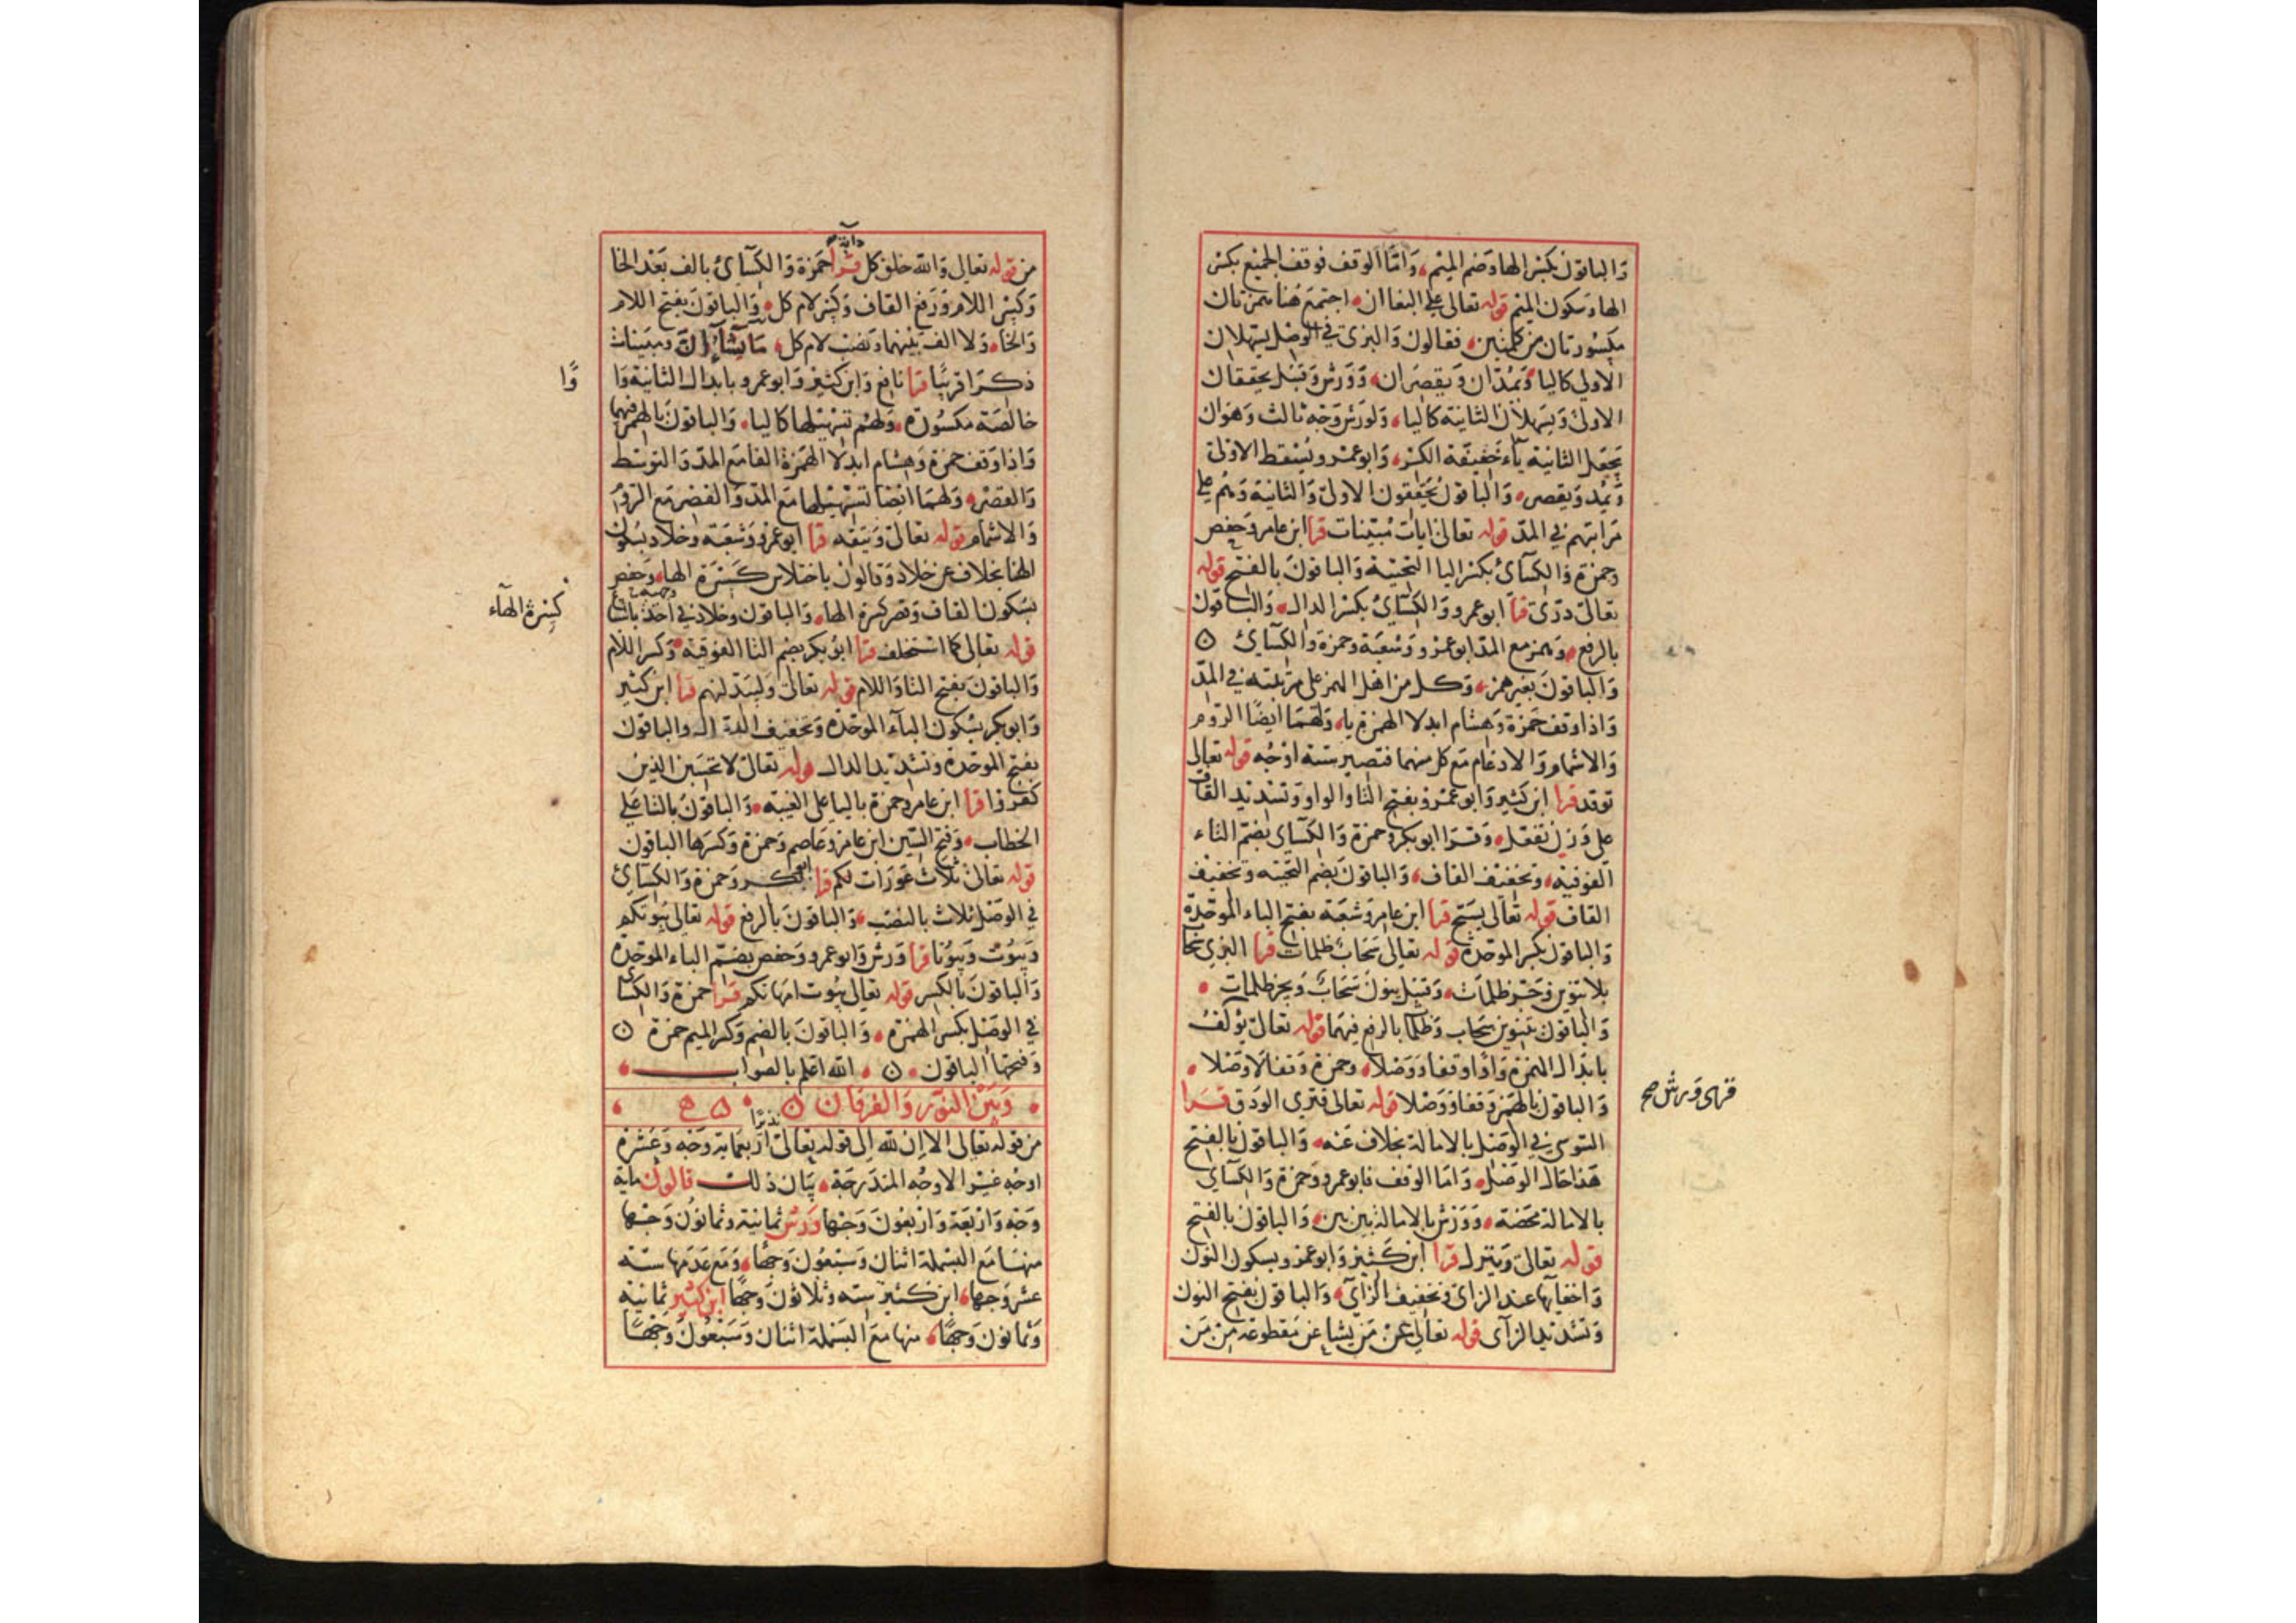 والباقون بكسر الها وضم الميم، واما الوقف فوقف الجميع بكسر
الها وسكون الميم قوله تعالى على البغا ان، اجتمع هنا همزتان
مكسورتان من كلمتين، فقالون والبزى في الوصل يسهلان
الاولى كاليا ويمدان ويقصران، وورش وقنبل يحققان
الاولى ويسهلان الثانية كاليا، ولورش وجه ثالث وهو ان
يجعل الثانية ياء خفيفة الكسر، وابو عمرو يسقط الاولى
ويمد ويقصر، والباقون يحققون الاولى والثانية وهم على
مراتبهم في المد قوله تعالى ايات مبينات قرا ابن عامر وحفص
وحمزة والكسآئ بكسر اليا التحتية والباقون بالفتح قوله
تعالى درى قرا ابو عمرو والكسآئ بكسر الدال، والباقون
بالرفع، وهمز مع المد ابو عمرو وشعبة وحمزة والكسآئ
والباقون بغير همز، وكل من اهل الهمز على مرتبته في المد
واذا وقف حمزة وهشام ابدلا الهمزة يا، ولهما ايضا الروم
والاشمام والادغام مع كل منهما فتصير ستة اوجه قوله تعالى
توقد قرا ابن كثير وابو عمرو بفتح التا والواو وتشديد القاف
على وزن تفعل، وقرا ابو بكر وحمزة والكسآى بضم التاء
الفوقية، وتخفيف القاف، والباقون بضم التحتية وتخفيف
القاف قوله تعالى يسبح قرا ابن عامر وشعبة بفتح الباء الموحدة
والباقون بكسر الموحدة قوله تعالى سحاب ظلمات قرا البزي سحاب
بلا تنوين وجر ظلمات، وقنبل ينون سحاب ويجر ظلمات
والباقون بتنوين سحاب وظلمات بالرفع فيهما قوله تعالى يؤلف
بابدال الهمزة واوا وقفا ووصلا، وحمزة وقفا لا وصلا
قراى ورش صح
والباقون بالهمز وقفا ووصلا قوله تعالى فترى الودق قرا
السوسي في الوصل بالامالة بخلاف عنه، والباقون بالفتح
هذا حال الوصل، واما الوقف فابو عمرو وحمزة والكسآى
بالامالة محضة، وورش بالامالة بين بين، والباقون بالفتح
قوله تعالى وينزل قرا ابن كثير وابو عمرو بسكون النون
واخفآيها عند الزاى وتخفيف الزآى، والباقون بفتح النون
وتشديد الزآى قوله تعالى عن من يشا عن مقطوعة من من
من قوله تعالى والله خلق كل دابة قرا حمزة والكسآئ بالف بعد الخا
وكسر اللام ورفع القاف وكسر لام كل، والباقون بفتح اللام
والخا، ولا الف بينهما ونصب لام كل، ما يشآء ان ومبينات
ذكرا قريبا قرا نافع وابن كثير وابو عمرو بابدال الثانية وا
وًا
خالصة مكسورة، ولهم تسهيلها كاليا، والباقون بالهمز فيهما
واذا وقف حمزة وهشام ابدلا الهمزة الفا مع المد والتوسط
والقصر، ولهما ايضا تسهيلها مع المد والقصر مع الروم
والاشمام قوله تعالى ويتقه قرا ابو عمرو وشعبة وخلاد بسكون
الها بخلاف عن خلاد وقالون باختلاس كسرة الها، وحفص
بسكون القاف وقصر كسرة الها، والباقون وخلاد في احد
كسرة الهآء
قوله تعالى كما استخلف قرا ابو بكر بضم التا الفوقية، وكسر اللام
والباقون بفتح التا واللام قوله تعالى وليبدلنهم قرا ابن كثير
وابو بكر بسكون البآء الموحدة وتخفيف الدال والباقون
بفتح الموحدة وتشديد الدال قوله تعالى لا تحسبن الذين
كفروا قرا ابن عامر وحمزة باليا على الغيبة، والباقون بالتا على
الخطاب، وفتح السين ابن عامر وعاصم وحمزة وكسرها الباقون
قوله تعالى ثلاث عورات لكم قرا ابو بكر وحمزة والكسآئ
في الوصل ثلاث بالنصب، والباقون بالرفع قوله تعالى بيوتكم
وبيوت وبيوتا قرا ورش وابو عمرو وحفص بضم الباء الموحدة
والباقون بالكسر قوله تعالى بيوت امهاتكم قرا حمزة والكسآى
في الوصل بكسر الهمزة، والباقون بالضم وكسر الميم حمزة
وفتحها الباقون، الله اعلم بالصواب
وبين النور والفرقان
من قوله تعالى الا ان لله الى قوله تعالى نذيرا اربعماية وجه وعشرة
اوجه غير الاوجه المندرجة، بيان ذلك قالون ماية
وجه واربعة واربعون وجها ورش ثمانية وثمانون وجها
منها مع البسملة اثنان وسبعون وجها، ومع عدمها ستة
عشر وجها، ابن كثير ستة وثلاثون وجها ابن كثير ثمانية
وثمانون وجها، منها مع البسملة اثنان وسبعون وجها